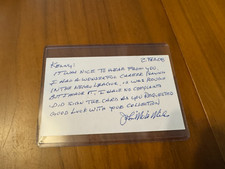 Kenny:
IT WAS NICE TO HEAR FROM YOU.
I HAD A WONDERFUL CAREER
IN THE NEGRO LEAGUE. IT WAS ROUGH
BUT I MADE IT. I HAVE NO COMPLAINTS
I DID SIGN THE CARD AS YOU REQUESTED
GOOD LUCK WITH YOUR COLLECTION
John